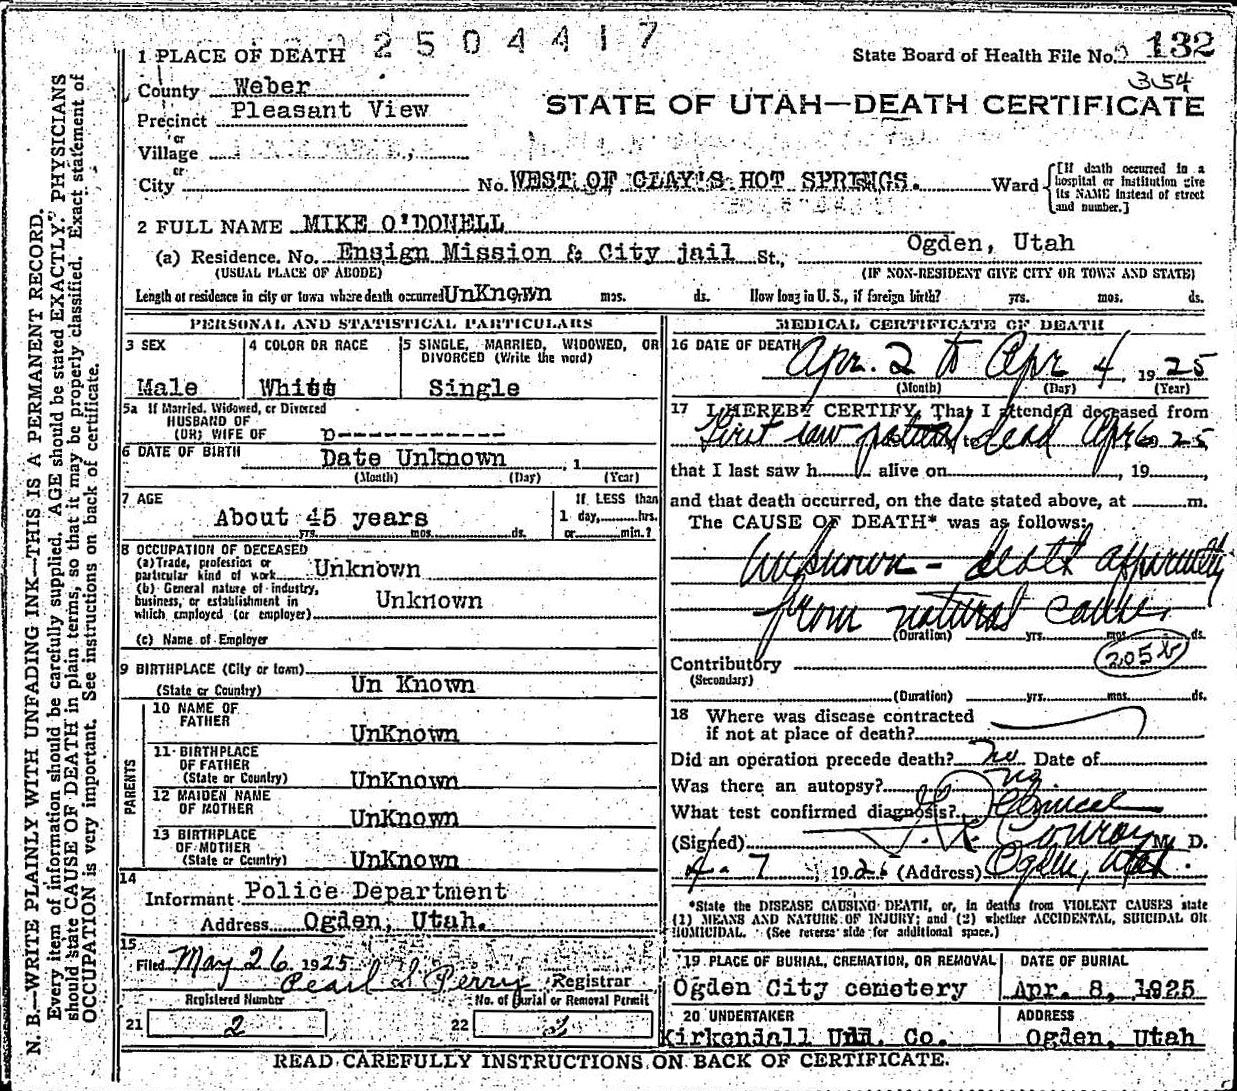 2504417
1 PLACE OF DEATH
State Board of Health File No. 132
354
County Weber
STATE OF UTAH—DEATH CERTIFICATE
Precinct Pleasant View
or
Village
or
City
No. WEST OF CLAY'S HOT SPRINGS.
Ward
[If death occurred in a hospital or institution give its NAME instead of street and number.]
2 FULL NAME MIKE O'DONELL
(a) Residence. No. Ensign Mission & City jail St., Ogden, Utah
(USUAL PLACE OF ABODE) (IF NON-RESIDENT GIVE CITY OR TOWN AND STATE)
Length of residence in city or town where death occurred UnKnown yrs. mos. ds. How long in U. S., if foreign birth? yrs. mos. ds.
PERSONAL AND STATISTICAL PARTICULARS
3 SEX 4 COLOR OR RACE 5 SINGLE, MARRIED, WIDOWED, OR
DIVORCED (Write the word)
Male White Single
5a If Married, Widowed, or Divorced
HUSBAND OF
(OR) WIFE OF
6 DATE OF BIRTH Date Unknown , 1
(Month) (Day) (Year)
7 AGE If LESS than
About 45 years 1 day, hrs.
yrs. mos. ds. or min.?
8 OCCUPATION OF DECEASED
(a) Trade, profession or
particular kind of work Unknown
(b) General nature of industry,
business, or establishment in Unknown
which employed (or employer)
(c) Name of Employer
9 BIRTHPLACE (City or town)
(State or Country) Un Known
PARENTS
10 NAME OF
FATHER UnKnown
11 BIRTHPLACE
OF FATHER
(State or Country) UnKnown
12 MAIDEN NAME
OF MOTHER UnKnown
13 BIRTHPLACE
OF MOTHER
(State or Country) UnKnown
14
Informant Police Department
Address Ogden, Utah.
15
Filed May 26 1925
Pearl S Perry Registrar
Registered Number No. of Burial or Removal Permit
21 2 22
MEDICAL CERTIFICATE OF DEATH
16 DATE OF DEATH Apr. 2 to Apr 4, 1925
(Month) (Day) (Year)
17 I HEREBY CERTIFY, That I attended deceased from
First saw patient dead Apr 6 25
that I last saw h alive on , 19 ,
and that death occurred, on the date stated above, at m.
The CAUSE OF DEATH* was as follows:
Unknown - death apparently
from natural cause.
(Duration) yrs. mos. ds.
205 b
Contributory
(Secondary)
(Duration) yrs. mos. ds.
18 Where was disease contracted
if not at place of death?
Did an operation precede death? no Date of
Was there an autopsy? no
What test confirmed diagnosis? Clinical
(Signed) Conroy M. D.
4-7 192 (Address) Ogden, Utah.
*State the DISEASE CAUSING DEATH, or, in deaths from VIOLENT CAUSES state
(1) MEANS AND NATURE OF INJURY; and (2) whether ACCIDENTAL, SUICIDAL OR
HOMICIDAL. (See reverse side for additional space.)
19 PLACE OF BURIAL, CREMATION, OR REMOVAL DATE OF BURIAL
Ogden City cemetery Apr. 8, 1925
20 UNDERTAKER ADDRESS
Kirkendall Und. Co. Ogden, Utah
READ CAREFULLY INSTRUCTIONS ON BACK OF CERTIFICATE.
N. B.—WRITE PLAINLY WITH UNFADING INK—THIS IS A PERMANENT RECORD.
Every item of information should be carefully supplied. AGE should be stated EXACTLY. PHYSICIANS
should state CAUSE OF DEATH in plain terms, so that it may be properly classified. Exact statement of
OCCUPATION is very important. See instructions on back of certificate.